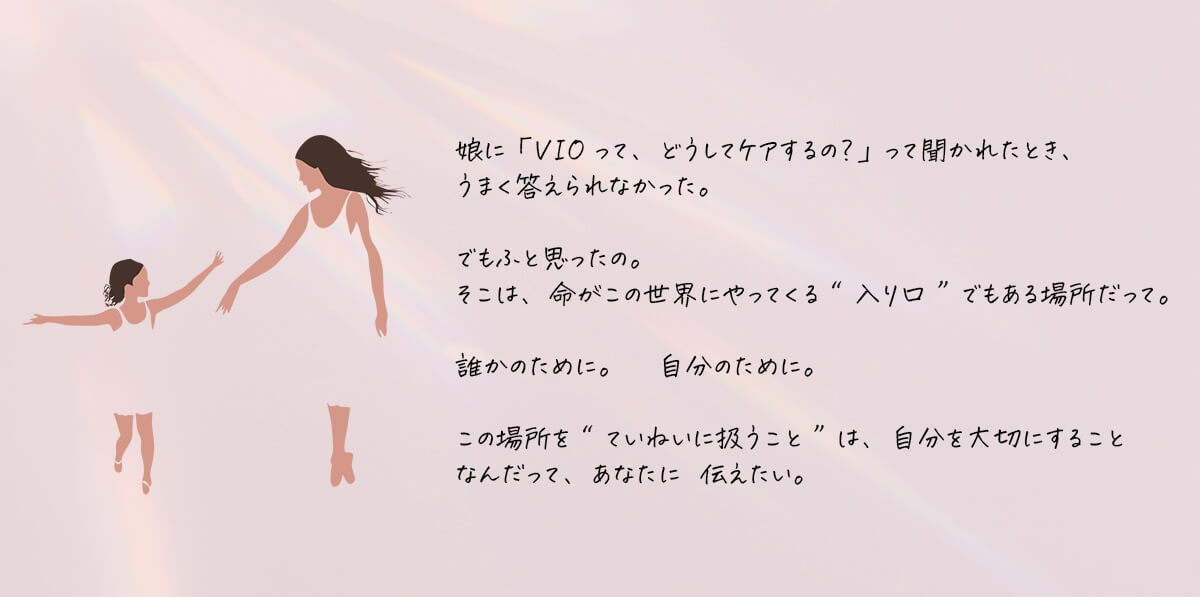 娘に「VIOって、どうしてケアするの?」って聞かれたとき、
うまく答えられなかった。
でもふと思ったの。
そこは、命がこの世界にやってくる“入り口”でもある場所だって。
誰かのために。 自分のために。
この場所を“ていねいに扱うこと”は、自分を大切にすること
なんだって、あなたに 伝えたい。